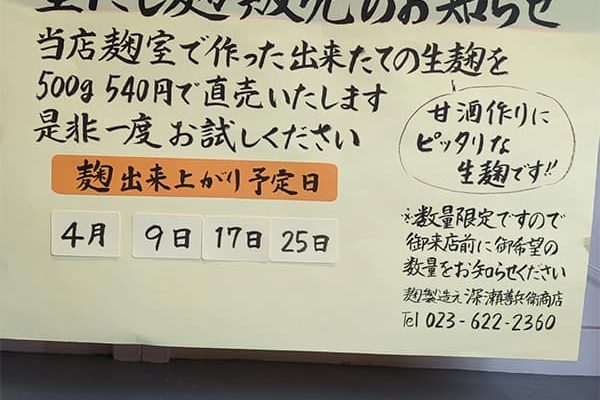 生だし麹販売のお知らせ
当店麹室で作った出来たての生麹を
500g 540円で直売いたします
是非一度お試しください
甘酒作りに
ピッタリな
生麹です!!
麹出来上がり予定日
4月 9日 17日 25日
※数量限定ですので
御来店前に御希望の
数量をお知らせください
麹製造元 深瀬善兵衛商店
Tel 023-622-2360